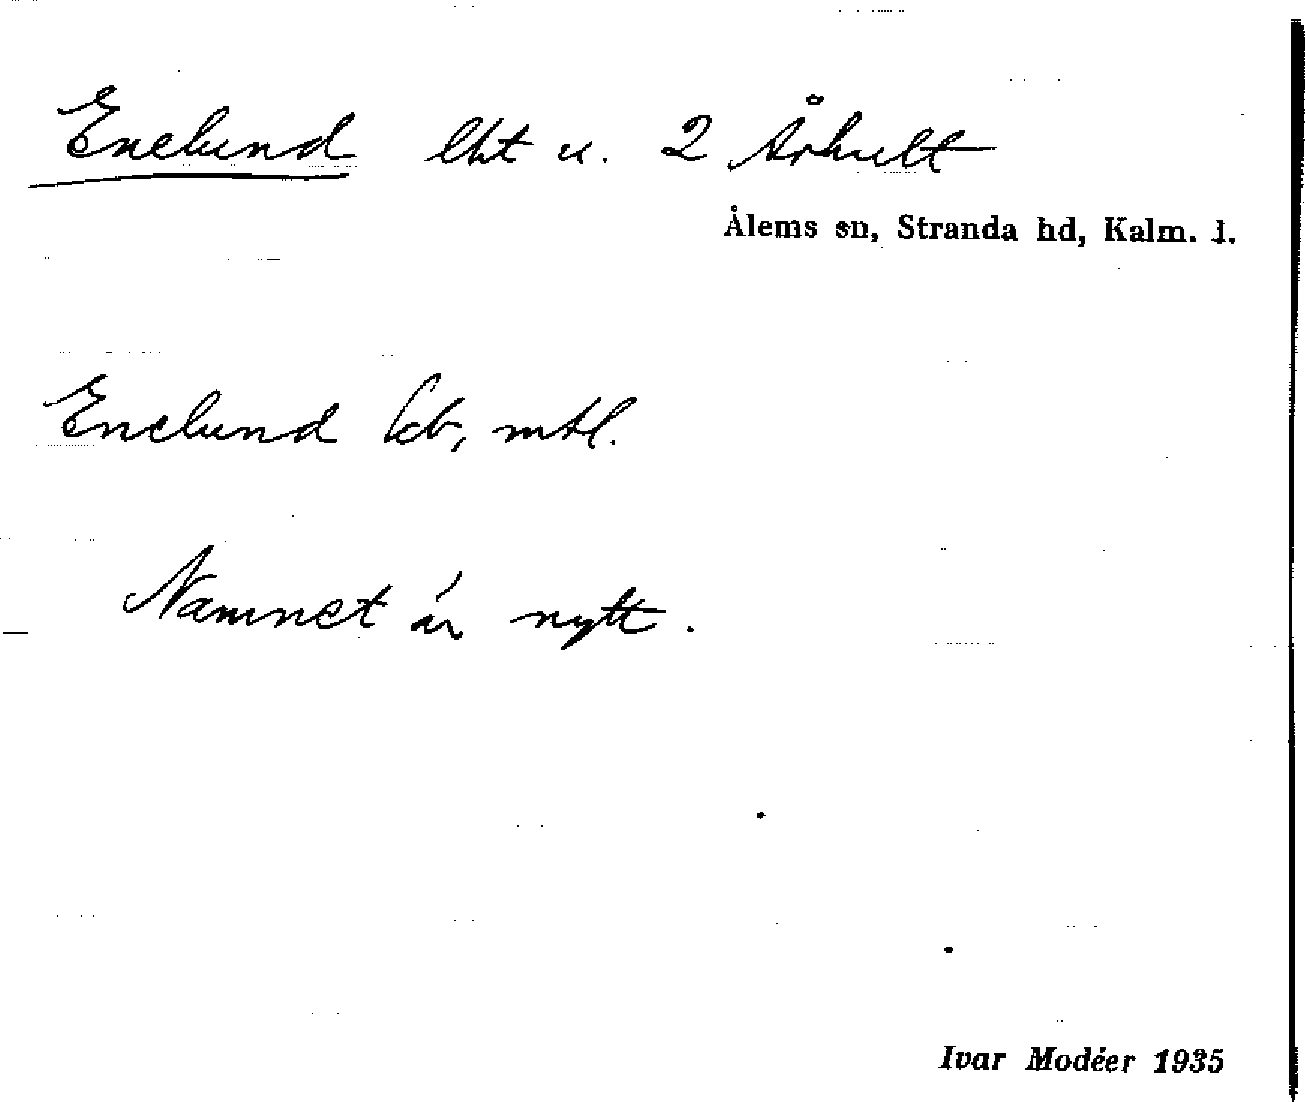 Enelund lht u. 2 Århult
Ålems sn, Stranda hd, Kalm. l.
Enelund kb, mtl.
Namnet är nytt.
Ivar Modéer 1935